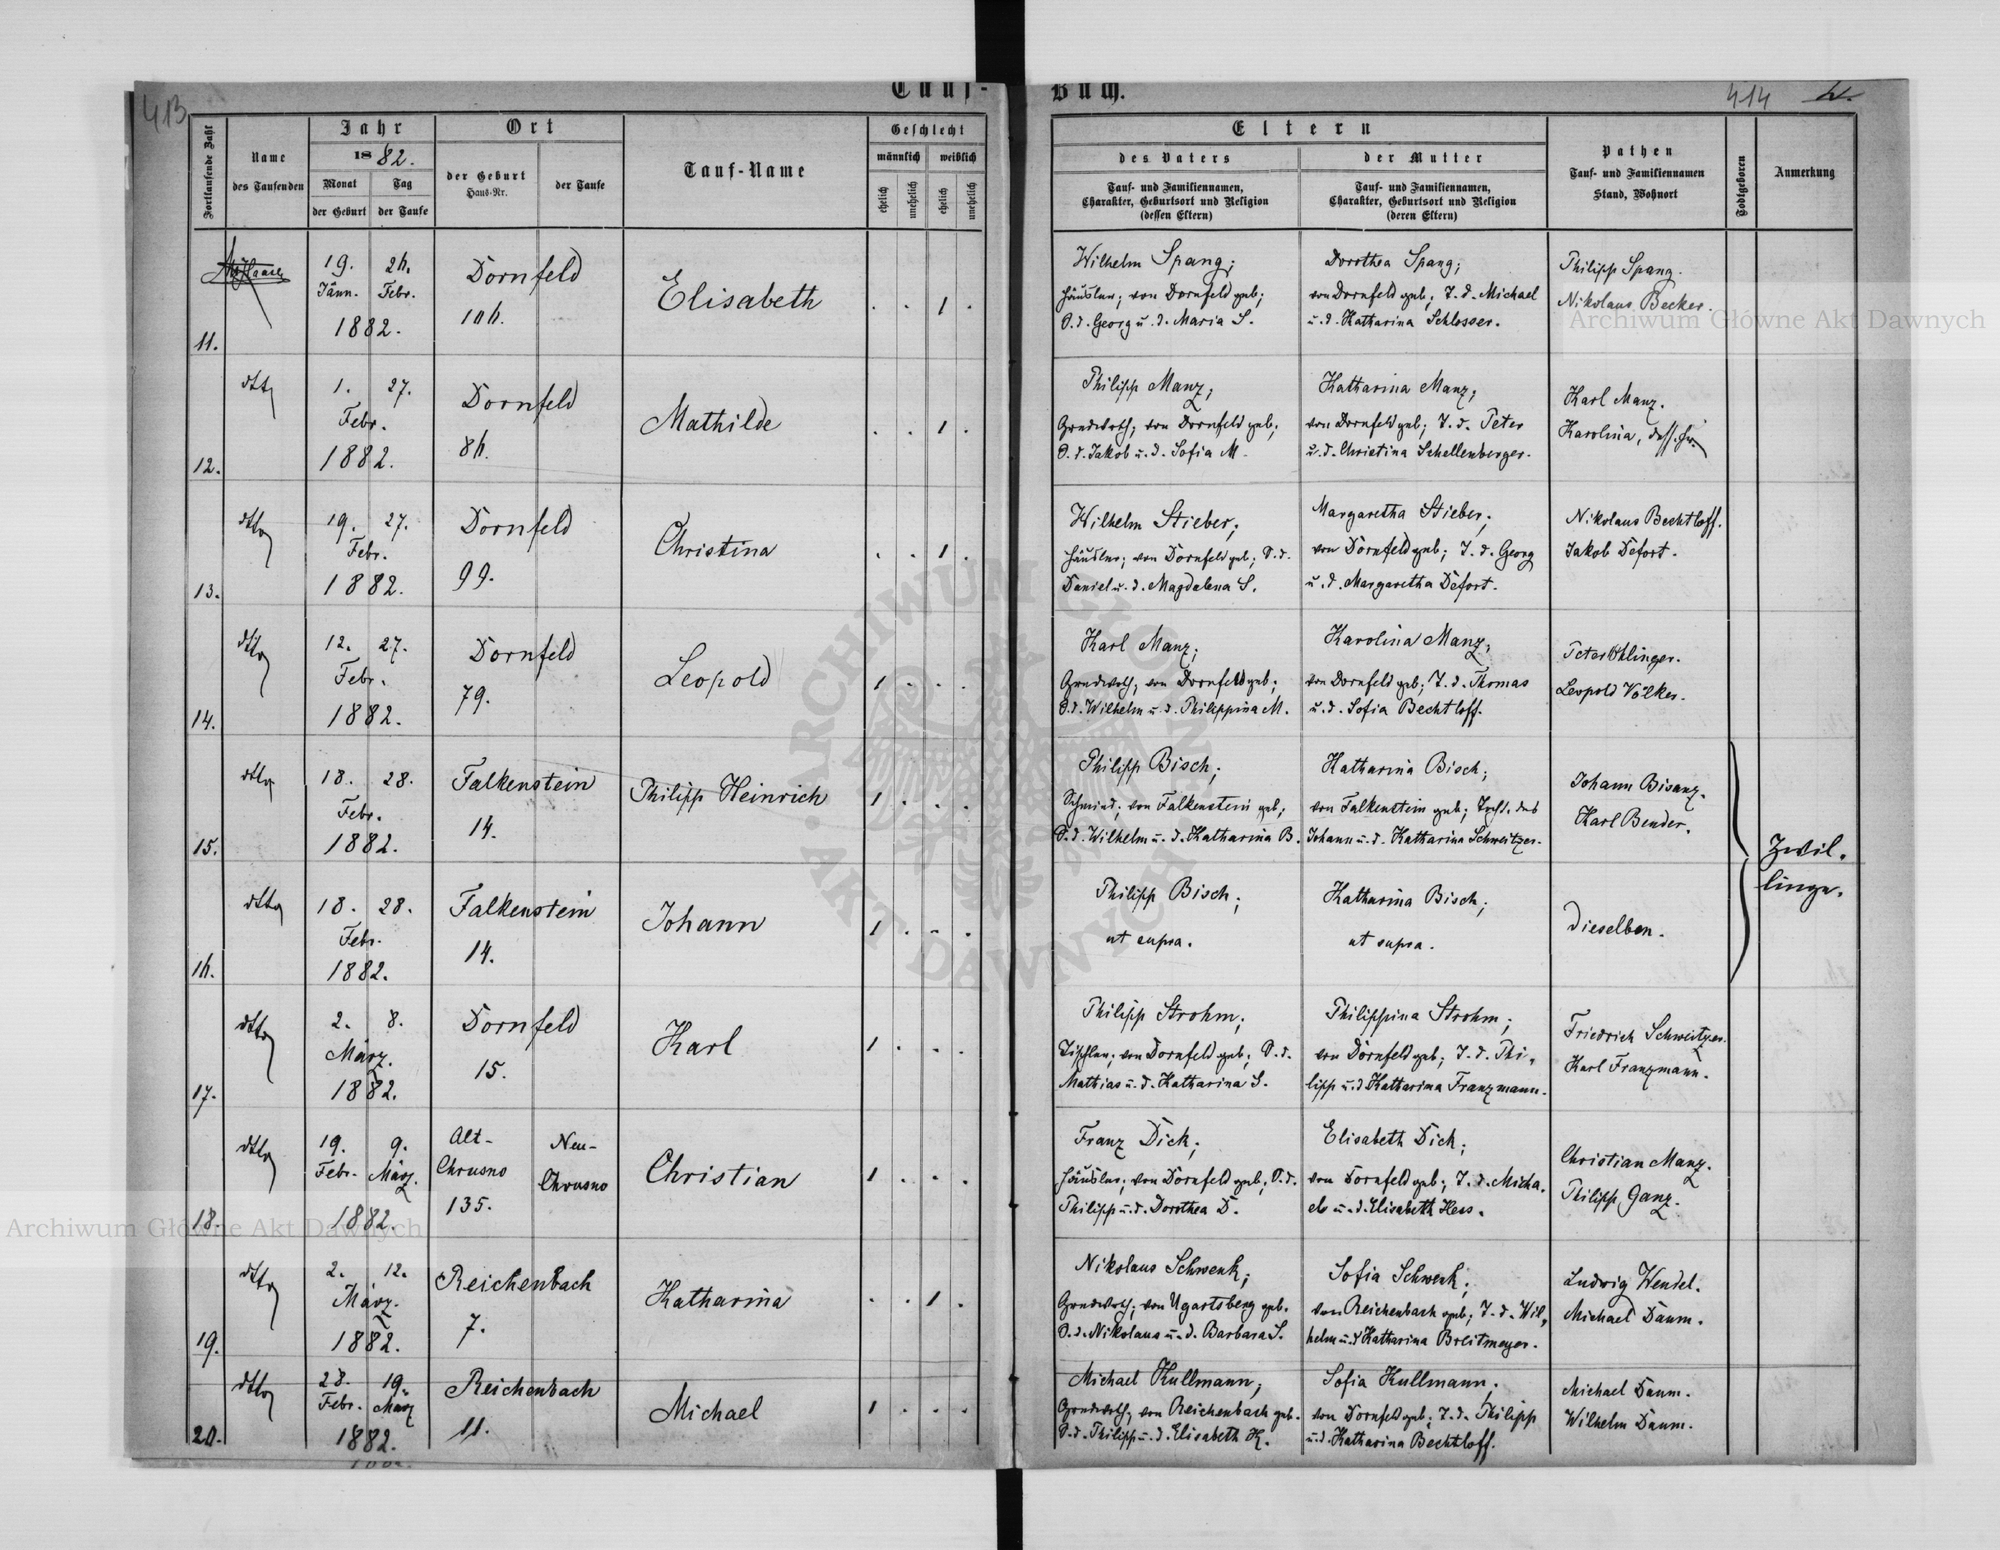 413
Tauf-
Buch.
414
Fortlaufende Zahl
Name
des Taufenden
Jahr
1882.
Monat
Tag
der Geburt
der Taufe
Ort
der Geburt
Haus-Nr.
der Taufe
Tauf-Name
Geschlecht
männlich
weiblich
ehelich
unehelich
ehelich
unehelich
Eltern
des Vaters
Tauf- und Familiennamen,
Charakter, Geburtsort und Religion
(dessen Eltern)
der Mutter
Tauf- und Familiennamen,
Charakter, Geburtsort und Religion
(deren Eltern)
Pathen
Tauf- und Familiennamen
Stand, Wohnort
Todtgeboren
Anmerkung
11.
19. 26.
Jänn. Febr.
1882.
Dornfeld
106.
Elisabeth
. . 1 .
Wilhelm Spang;
Häusler; von Dornfeld geb;
S. d. Georg u. d. Maria S.
Dorothea Spang;
von Dornfeld geb; T. d. Michael
u. d. Katharina Schlosser.
Philipp Spang.
Nikolaus Becker.
12.
dtto
1. 27.
Febr.
1882.
Dornfeld
86.
Mathilde
. . 1 .
Philipp Manz;
Grundwrth; von Dornfeld geb;
S. d. Jakob u. d. Sofia M.
Katharina Manz;
von Dornfeld geb; T. d. Peter
u. d. Christina Schellenberger.
Karl Manz.
Karolina, dess. Fr.
13.
dtto
19. 27.
Febr.
1882.
Dornfeld
99.
Christina
. . 1 .
Wilhelm Stieber;
Häusler; von Dornfeld geb; S. d.
Daniel u. d. Magdalena S.
Margaretha Stieber;
von Dornfeld geb; T. d. Georg
u. d. Margaretha Defort.
Nikolaus Bechtloff.
Jakob Defort.
14.
dtto
12. 27.
Febr.
1882.
Dornfeld
79.
Leopold
1 . . .
Karl Manz;
Grundwrth; von Dornfeld geb;
S. d. Wilhelm u. d. Philippina M.
Karolina Manz;
von Dornfeld geb; T. d. Thomas
u. d. Sofia Bechtloff.
Peter Ohlinger.
Leopold Völker.
15.
dtto
18. 28.
Febr.
1882.
Falkenstein
14.
Philipp Heinrich
1 . . .
Philipp Bisch;
Schmied; von Falkenstein geb;
S. d. Wilhelm u. d. Katharina B.
Katharina Bisch;
von Falkenstein geb; Tocht. des
Johann u. d. Katharina Schweitzer.
Johann Bisanz.
Karl Bender.
Zwil-
linge.
16.
dtto
18. 28.
Febr.
1882.
Falkenstein
14.
Johann
1 . . .
Philipp Bisch;
ut supra.
Katharina Bisch;
ut supra.
Dieselben.
17.
dtto
2. 8.
März.
1882.
Dornfeld
15.
Karl
1 . . .
Philipp Strohm;
Tischler; von Dornfeld geb; S. d.
Mathias u. d. Katharina S.
Philippina Strohm;
von Dornfeld geb; T. d. Phi-
lipp u. d. Katharina Franzmann.
Friedrich Schweitzer.
Karl Franzmann.
18.
dtto
19. 9.
Febr. März.
1882.
Alt-
Chrusno
135.
Neu-
Chrusno
Christian
1 . . .
Franz Dick;
Häusler; von Dornfeld geb; S. d.
Philipp u. d. Dorothea D.
Elisabeth Dick;
von Dornfeld geb; T. d. Micha-
els u. d. Elisabeth Hess.
Christian Manz.
Philipp Ganz.
19.
dtto
2. 12.
März.
1882.
Reichenbach
7.
Katharina
. . 1 .
Nikolaus Schwenk;
Grundwrth; von Ugartsberg geb.
S. d. Nikolaus u. d. Barbara S.
Sofia Schwenk;
von Reichenbach geb; T. d. Wil-
helm u. d. Katharina Breitmayer.
Ludwig Wendel.
Michael Daum.
20.
dtto
28. 19.
Febr. März
1882.
Reichenbach
11.
Michael
1 . . .
Michael Kullmann;
Grundwrth; von Reichenbach geb.
S. d. Philipp u. d. Elisabeth K.
Sofia Kullmann;
von Dornfeld geb; T. d. Philipp
u. d. Katharina Bechtloff.
Michael Daum.
Wilhelm Daum.
Archiwum Główne Akt Dawnych
Archiwum Główne Akt Dawnych
ARCHIWUM GŁÓWNE AKT DAWNYCH